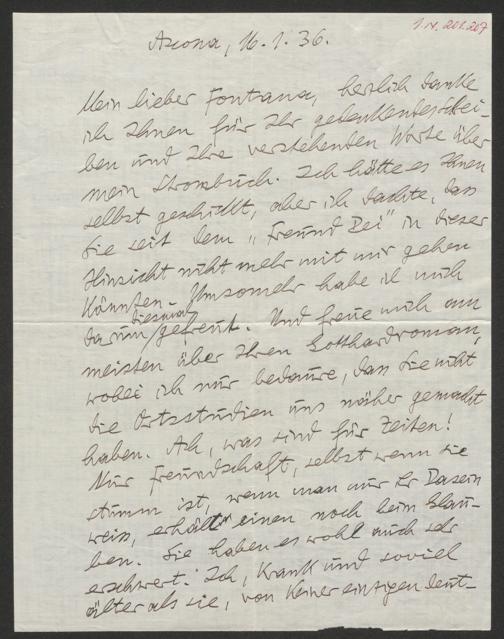 I.N. 201.207
Ascona, 16.1.36.
Mein lieber Fontana, herzlich danke
ich Ihnen für Ihr gedenkendes Schrei-
ben und Ihre verstehenden Worte über
mein Strombuch. Ich hätte es Ihnen
selbst geschickt, aber ich dachte, dass
Sie seit dem „Freund Bei" in dieser
Hinsicht nicht mehr mit mir gehen
könnten. Umsomehr habe ich mich
diesmal
darum gefreut. Und freue mich am
meisten über Ihren Gotthardroman,
wobei ich nur bedaure, dass Sie nicht
die Ortsstudien uns näher gemacht
haben. Ach, was sind für Zeiten!
Nur Freundschaft, selbst wenn sie
stumm ist, wenn man nur ihr Dasein
weiss, erhält einen noch beim Glau-
ben. Sie haben es wohl auch sehr
erschwert. Ich, krank und soviel
älter als Sie, von keiner einzigen deut-